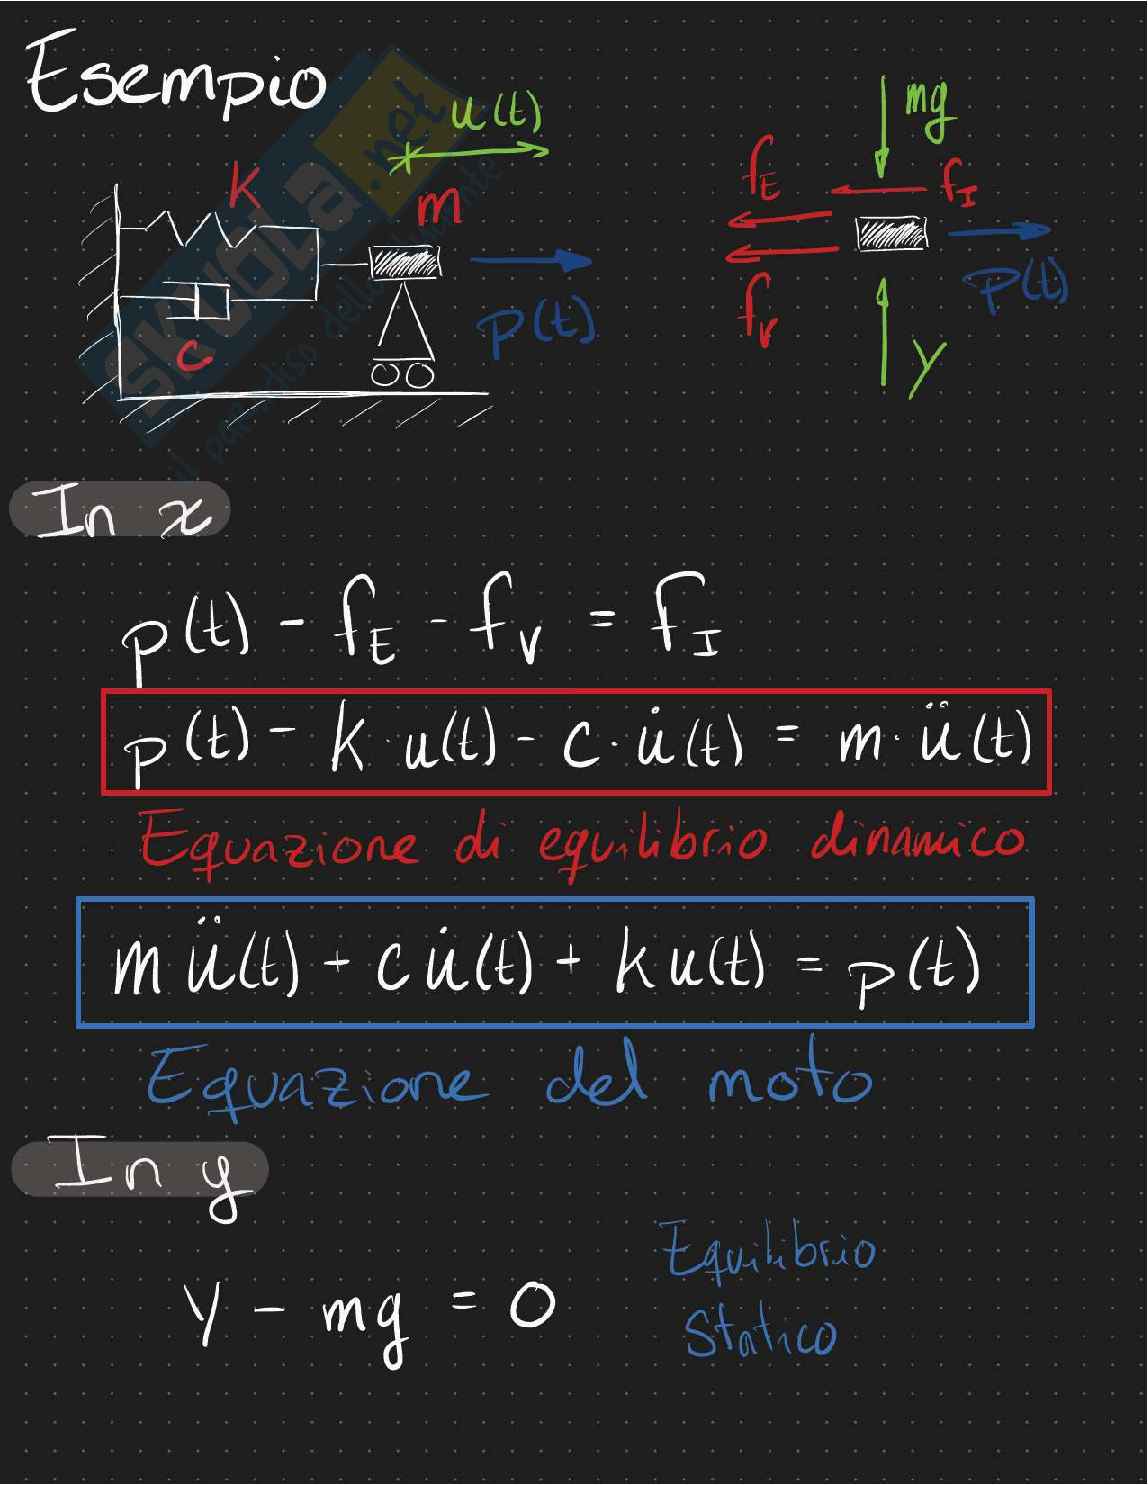 Esempio
u(t)
k
m
c
p(t)
mg
f_E
f_I
f_V
p(t)
Y
SKUOLA.net
il paradiso dello studente
In x
p(t) - f_E - f_V = f_I
p(t) - k · u(t) - c · u̇(t) = m · ü(t)
Equazione di equilibrio dinamico
m ü(t) + c u̇(t) + k u(t) = p(t)
Equazione del moto
In y
Y - mg = 0
Equilibrio
Statico